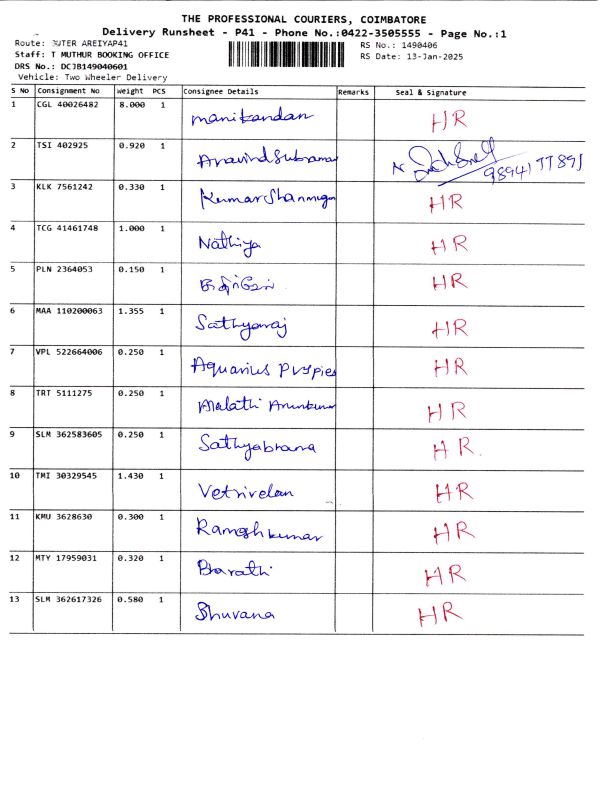 THE PROFESSIONAL COURIERS, COIMBATORE
Delivery Runsheet - P41 - Phone No.:0422-3505555 - Page No.:1
Route: OUTER AREIYAP41
RS No.: 1490406
Staff: T MUTHUR BOOKING OFFICE
RS Date: 13-Jan-2025
DRS No.: DCJB149040601
Vehicle: Two Wheeler Delivery
S No Consignment No Weight PCS Consignee Details Remarks Seal & Signature
1 CGL 40026482 8.000 1 manikandan HR
2 TSI 402925 0.920 1 Aravind Subraman
3 KLK 7561242 0.330 1 Kumar Shanmugam HR
4 TCG 41461748 1.000 1 Nathiya HR
5 PLN 2364053 0.150 1 HR
6 MAA 110200063 1.355 1 Sathyaraj HR
7 VPL 522664006 0.250 1 Aquarius HR
8 TRT 5111275 0.250 1 Malathi Arunkumar HR
9 SLM 362583605 0.250 1 Sathyabhama HR.
10 TMI 30329545 1.430 1 Vetrivelan HR
11 KMU 3628630 0.300 1 Rameshkumar HR
12 MTY 17959031 0.320 1 Bharathi HR
13 SLM 362617326 0.580 1 Bhuvana HR